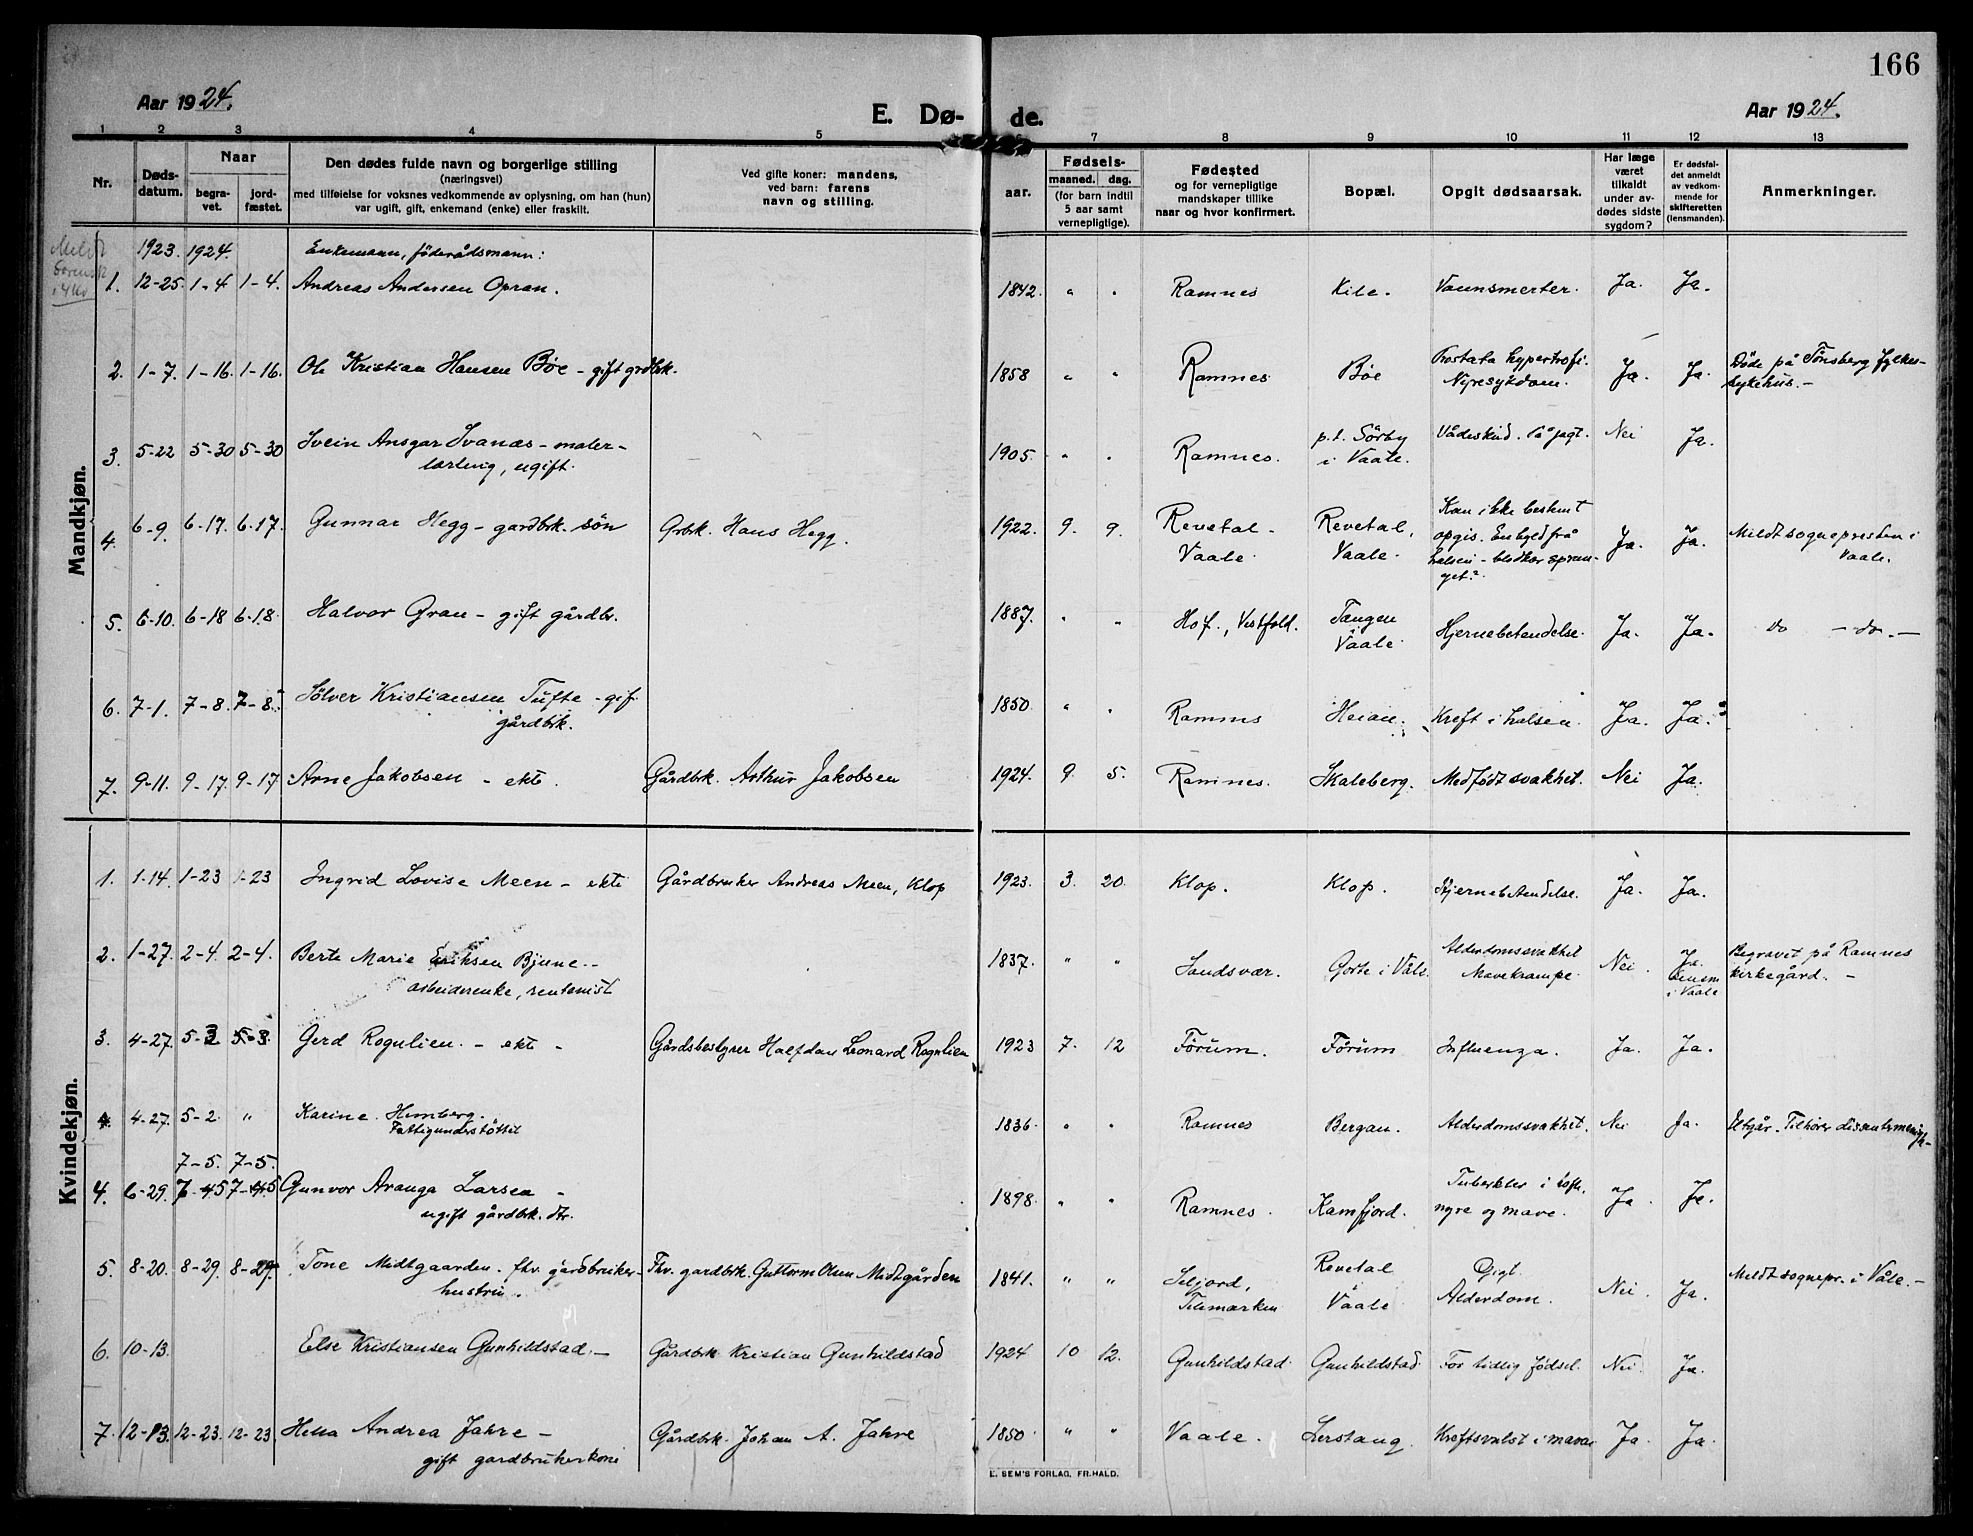 166
Aar 1924.
E. Dø-
de.
Aar 1924.
1 2 3 4 5 7 8 9 10 11 12 13
Nr.
Døds-
datum.
Naar
begra-
vet.
jord-
fæstet.
Den dødes fulde navn og borgerlige stilling
(næringsvei)
med tilføielse for voksnes vedkommende av oplysning, om han (hun)
var ugift, gift, enkemand (enke) eller fraskilt.
Ved gifte koner: mandens,
ved barn: farens
navn og stilling.
aar.
Fødsels-
maaned. dag.
(for barn indtil
5 aar samt
vernepligtige).
Fødested
og for vernepligtige
mandskaper tillike
naar og hvor konfirmert.
Bopæl.
Opgit dødsaarsak.
Har læge
været
tilkaldt
under av-
dødes sidste
sygdom?
Er dødsfal-
det anmeldt
av vedkom-
mende for
skifteretten
(lensmanden).
Anmerkninger.
Mandkjøn.
1923. 1924. Enkemann, föderådsmann:
1. 12-25. 1-4 1-4. Andreas Andersen Opran. 1842. " " Ramnes Kile. Vannsmerter. Ja. Ja.
2. 1-7. 1-16. 1-16. Ole Kristian Hansen Böe - gift grdbk. 1858 " " Ramnes Böe Prostata hypertrofi. Ja. Ja. Döde på Tönsberg fylkes-
Nyresykdom. sykehus. -
3. 5-22 5-30 5-30 Svein Ansgar Svanæs - maler- 1905. " " Ramnes. p.t. Sörby Vådeskud. På jagt. Nei Ja.
lærling, ugift. i Vaale.
4. 6-9. 6-17. 6-17. Gunnar Hegg - gardbrk. sön Grbk. Hans Hegg. 1922. 9. 9. Revetal - Revetal, Kan ikke bestemt Ja. Ja. Meldt sognepresten i
Vaale Vaale. opgis. En byld frå Vaale.
halsen - blodkar sprun-
get?
5. 6-10. 6-18 6-18. Halvor Gran - gift gårdbr. 1887. " " Hof, Vestfold. Tangen Hjernebetendelse. Ja. Ja. do - do. -
Vaale.
6. 7-1. 7-8. 7-8. Sölver Kristiansen Tufte - gif. 1850. " " Ramnes Heian. Kreft i halsen. Ja. Ja.
gårdbk.
7. 9-11. 9-17. 9-17 Arne Jakobsen - ekte. Gårdbk. Arthur Jakobsen 1924. 9. 5. Ramnes. Skaleberg. Medfödt svakhet. Nei Ja.
Kvindekjøn.
1. 1-14. 1-23 1-23 Ingrid Lovise Meen - ekte Gårdbruker Andreas Meen, Klop 1923. 3. 20. Klop. Klop. Hjernebetendelse. Ja. Ja.
2. 1-27. 2-4. 2-4. Berte Marie Eriksen Bjune - 1837. " " Sandsvær. Gorte i Våle. Alderdomssvakhet Nei. Ja. Begravet på Ramnes
arbeiderenke, rentenist Mavekrampe. lensm. kirkegård. -
i Vaale
3. 4-27. 5-3 5-3. Gerd Rogulien. - ekte - Gårdsbestyrer Halfdan Leonard Rogulien 1923 7. 12 Förum. Förum Influenza. Ja. Ja.
4. 4-27. 5-2. " Karine Himberg. 1836. " " Ramnes Bergan. Alderdomssvakhet. Nei Ja. Utgår. Tilhörer dissentermenigh-
Fattigunderstöttet
7-5. 7-5.
4. 6-29. 7-5 7-5 Gunvor Aranga Larsen - 1898. " " Ramnes. Kamfjord. Tuberkler i Ja. Ja.
ugift gårdbk. dtr. nyre og mave.
5. 8-20. 8-29. 8-29. Tone Midtgaarden. fhv. gårdbruker- Fhv. gardbrk. Guttorm Olsen Midtgården 1841. " " Seljord, Revetal Gigt. Nei. Ja. Meldt sognepr. i Våle. -
hustru. Telemarken Vaale Alderdom.
6. 10-13. Else Kristiansen Gunhildstad. - Gårdbk. Kristian Gunhildstad 1924 10 12. Gunhildstad. Gunhildstad. For tidlig födsel. Nei. Ja.
7. 12-13. 12-23. 12-23. Helia Andrea Jahre - Gårdbk. Johan A. Jahre 1850. " " Vaale. Lerstang. Kreftsvulst i maven Ja. Ja.
gift gardbrukerkone
E. SEM'S FORLAG, FR.HALD.